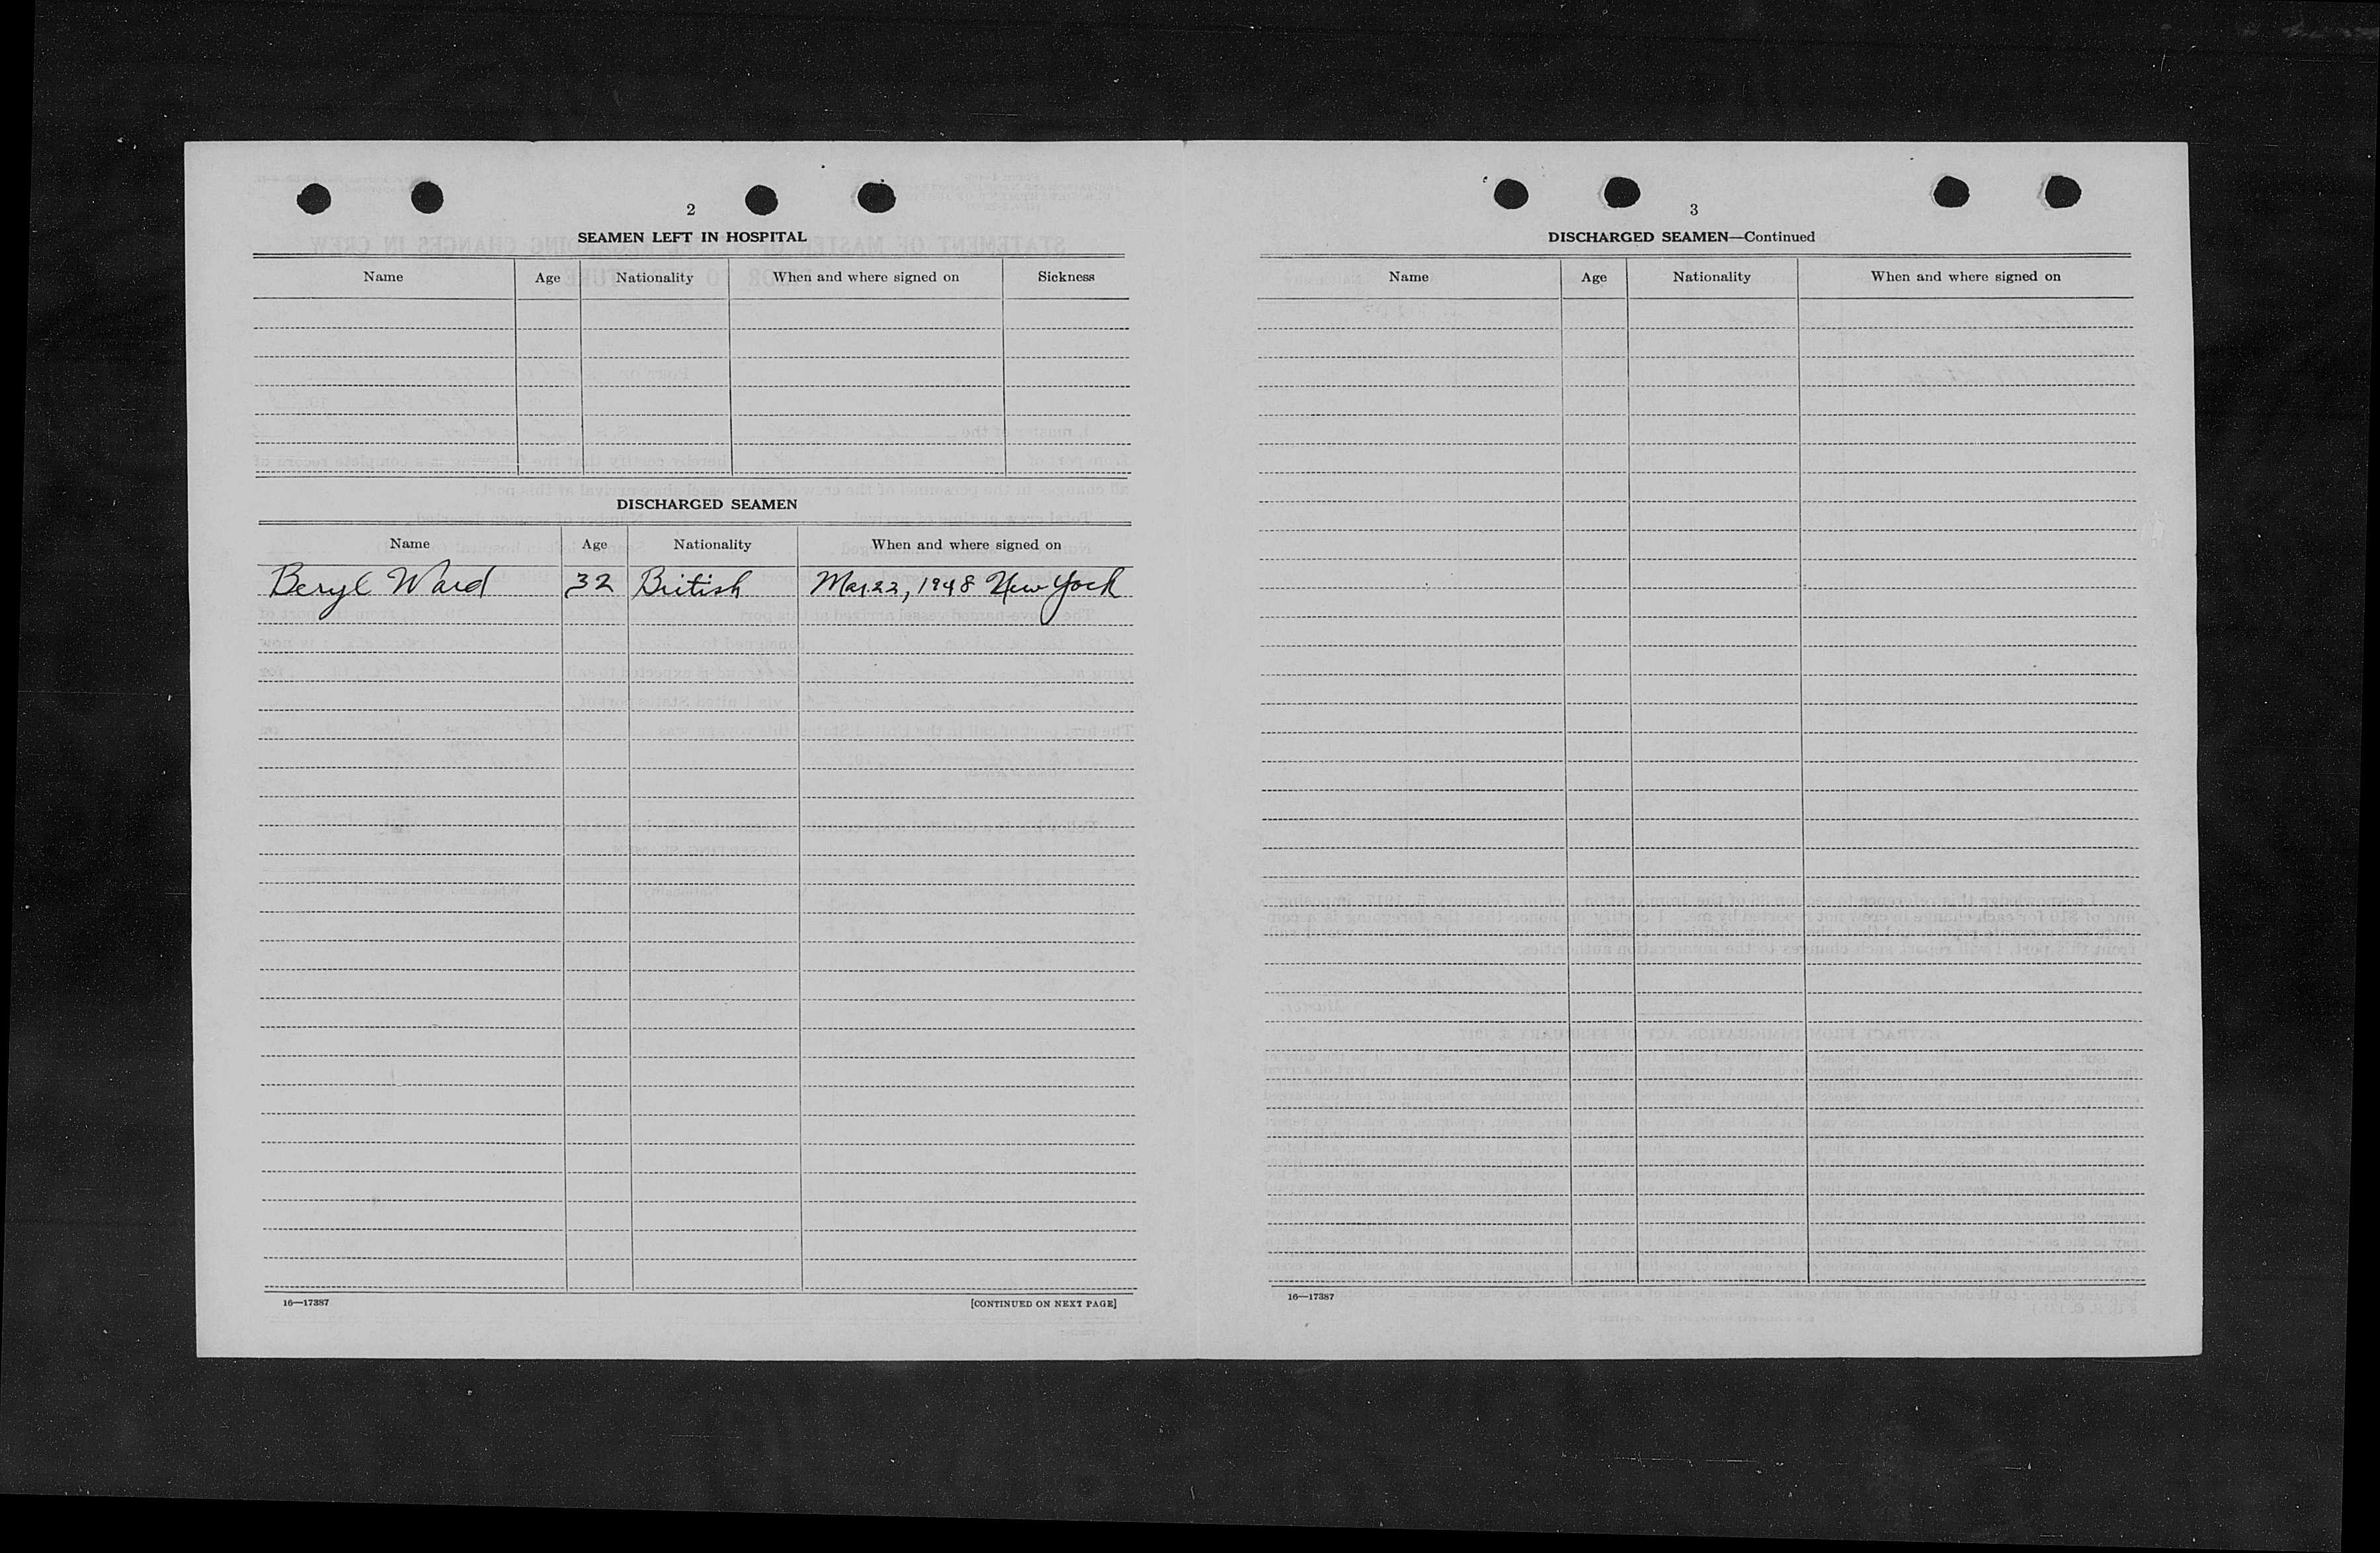 2
SEAMEN LEFT IN HOSPITAL
Name Age Nationality When and where signed on Sickness
DISCHARGED SEAMEN
Name Age Nationality When and where signed on
Beryl Ward 32 British Mar. 22, 1948 New York
16—17387 [CONTINUED ON NEXT PAGE]
3
DISCHARGED SEAMEN—Continued
Name Age Nationality When and where signed on
16—17387